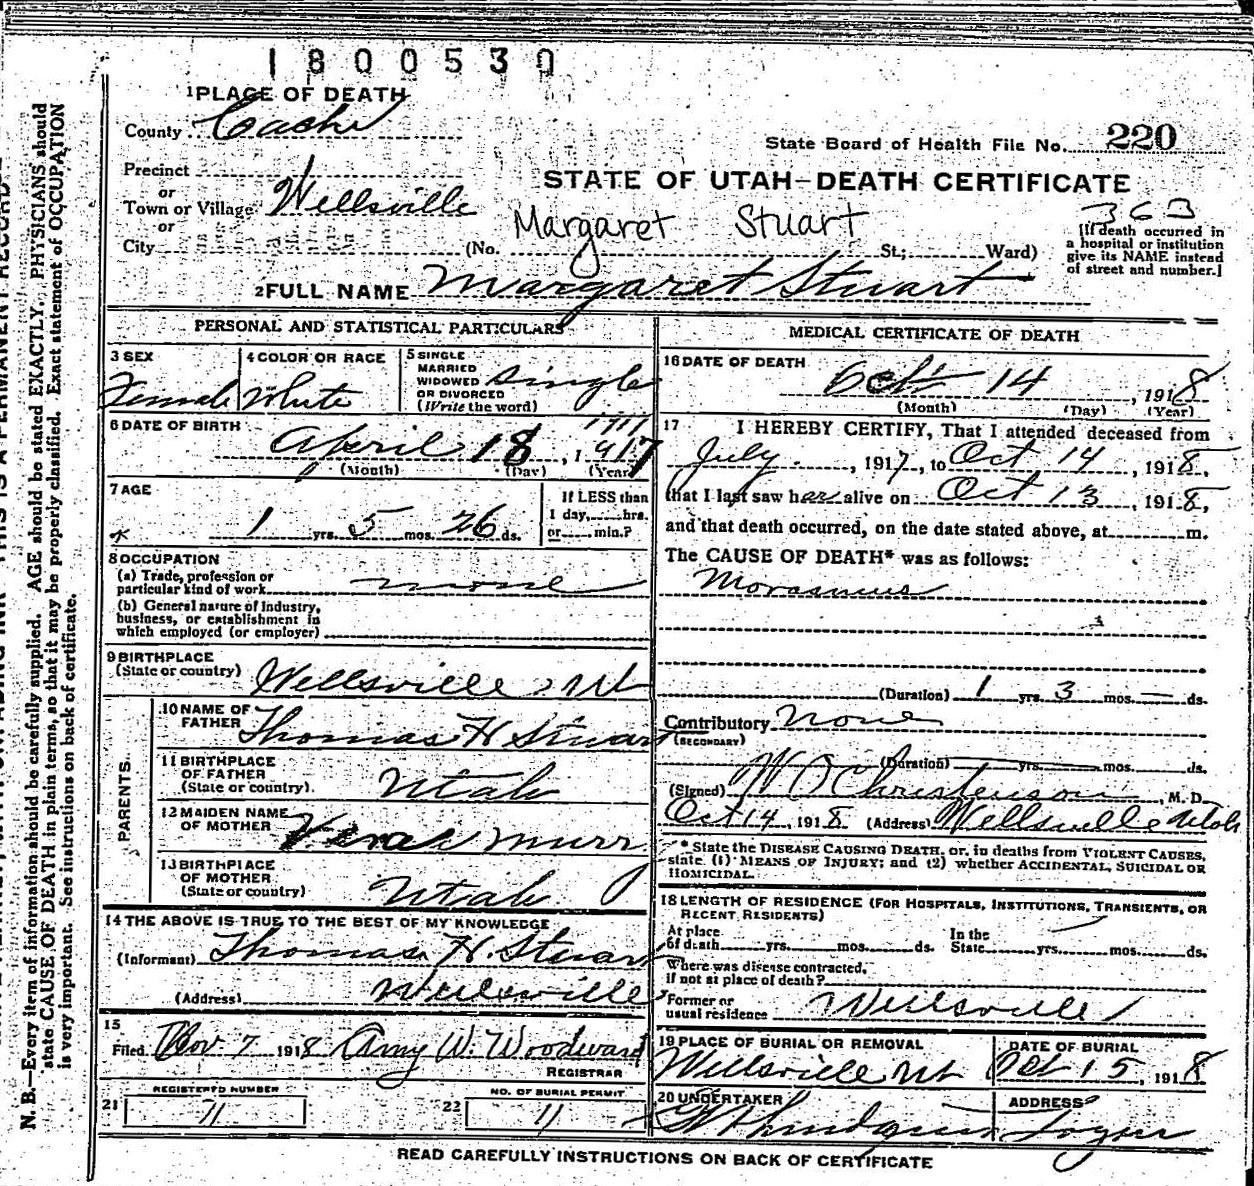 1800530
1 PLACE OF DEATH
County Cache
State Board of Health File No. 220
Precinct
or
Town or Village Wellsville
or
City
STATE OF UTAH—DEATH CERTIFICATE
363
Margaret Stuart
(No. St; Ward)
[If death occurred in
a hospital or institution
give its NAME instead
of street and number.]
2 FULL NAME Margaret Stuart
PERSONAL AND STATISTICAL PARTICULARS
3 SEX
Female
4 COLOR OR RACE
White
5 SINGLE
MARRIED
WIDOWED
OR DIVORCED
(Write the word)
Single
6 DATE OF BIRTH
April 18, 1917
(Month) (Day) (Year)
7 AGE
1 yrs. 5 mos. 26 ds.
If LESS than
1 day, hrs.
or min.?
8 OCCUPATION
(a) Trade, profession or
particular kind of work none
(b) General nature of Industry,
business, or establishment in
which employed (or employer)
9 BIRTHPLACE
(State or country) Wellsville Ut
PARENTS.
10 NAME OF
FATHER Thomas H Stuart
11 BIRTHPLACE
OF FATHER
(State or country). Utah
12 MAIDEN NAME
OF MOTHER Murr
13 BIRTHPLACE
OF MOTHER
(State or country) Utah
14 THE ABOVE IS TRUE TO THE BEST OF MY KNOWLEDGE
(Informant) Thomas H. Stuart
(Address) Wellsville
15
Filed Nov 7 1918 Amy W. Woodward
REGISTRAR
REGISTERED NUMBER
21 11
NO. OF BURIAL PERMIT
22 11
MEDICAL CERTIFICATE OF DEATH
16 DATE OF DEATH
Oct 14, 1918
(Month) (Day) (Year)
17 I HEREBY CERTIFY, That I attended deceased from
July, 1917, to Oct 14, 1918,
that I last saw her alive on Oct 13, 1918,
and that death occurred, on the date stated above, at m.
The CAUSE OF DEATH* was as follows:
Morasmus
(Duration) 1 yrs. 3 mos. — ds.
Contributory none
(SECONDARY)
(Duration) yrs. mos. ds.
(Signed) W O Christenson, M. D.
Oct 14, 1918 (Address) Wellsville Utah
* State the DISEASE CAUSING DEATH, or, in deaths from VIOLENT CAUSES,
state (1) MEANS OF INJURY; and (2) whether ACCIDENTAL, SUICIDAL OR
HOMICIDAL.
18 LENGTH OF RESIDENCE (FOR HOSPITALS, INSTITUTIONS, TRANSIENTS, OR
RECENT RESIDENTS)
At place
of death yrs. mos. ds.
In the
State yrs. mos. ds.
Where was disease contracted,
if not at place of death?
Former or
usual residence Wellsville
19 PLACE OF BURIAL OR REMOVAL
Wellsville Ut
DATE OF BURIAL
Oct 15, 1918
20 UNDERTAKER
ADDRESS
Logan
READ CAREFULLY INSTRUCTIONS ON BACK OF CERTIFICATE
N. B.—Every item of information should be carefully supplied. AGE should be stated EXACTLY. PHYSICIANS should
state CAUSE OF DEATH in plain terms, so that it may be properly classified. Exact statement of OCCUPATION
is very important. See instructions on back of certificate.